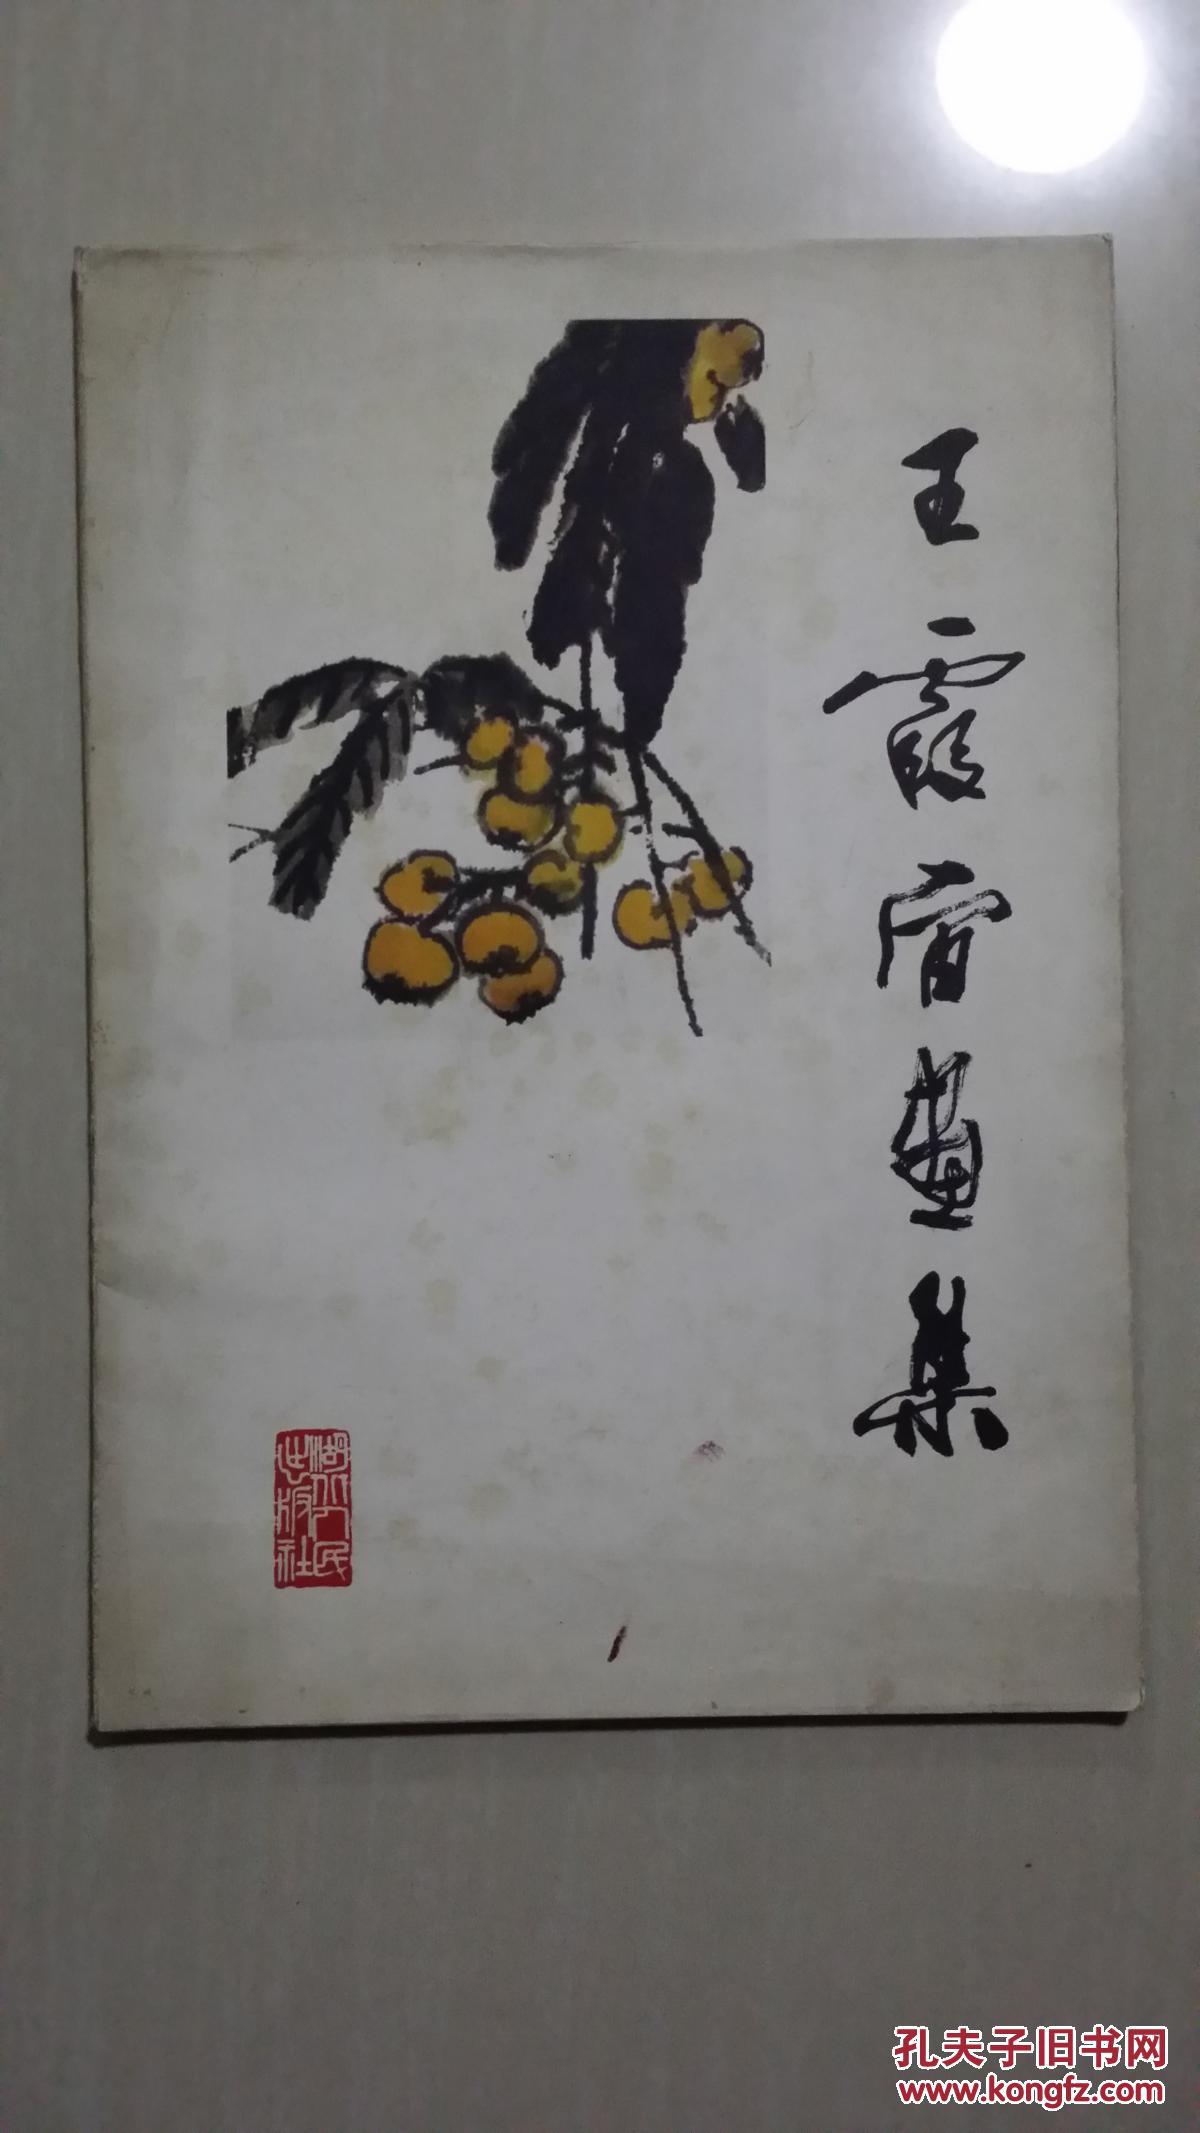 王霞宙画集
湖北人民
出版社
孔夫子旧书网
www.kongfz.com